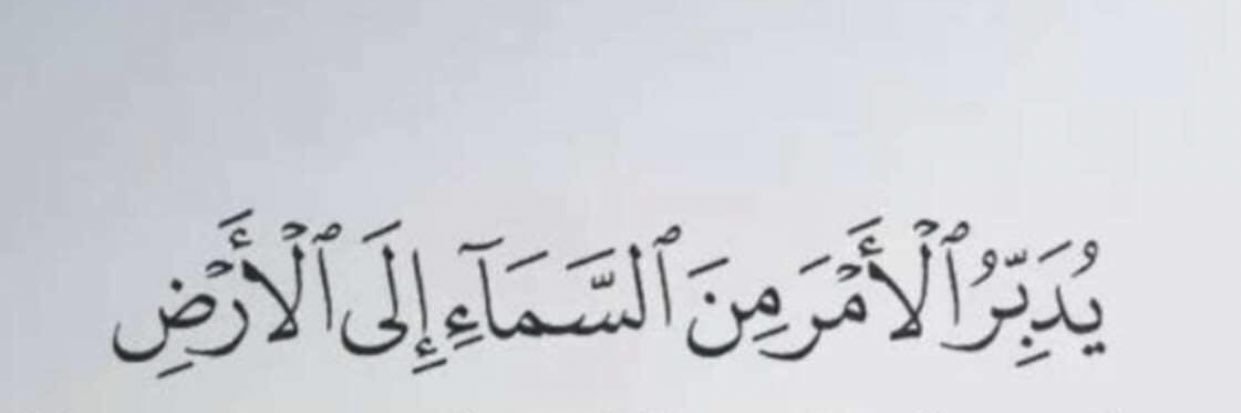 يُدَبِّرُ ٱلْأَمْرَ مِنَ ٱلسَّمَآءِ إِلَى ٱلْأَرْضِ